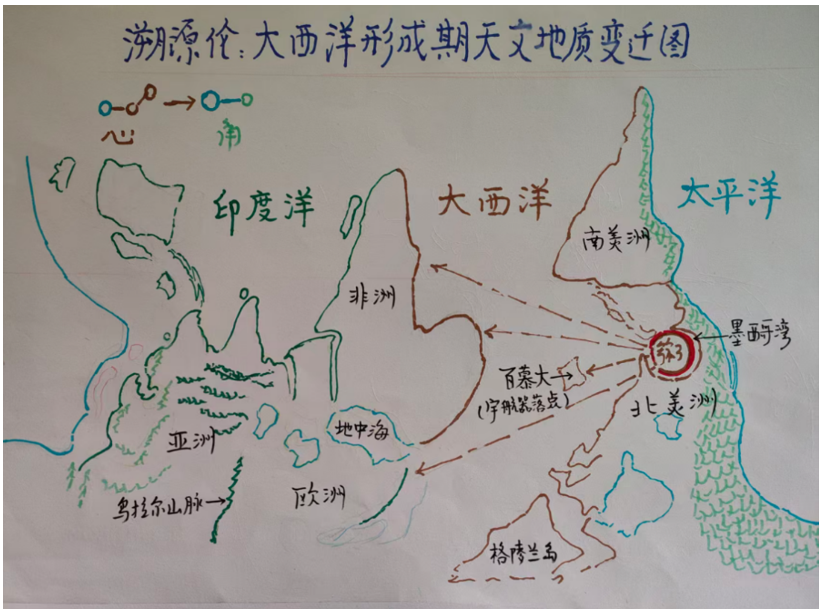 溯源伦:大西洋形成期天文地质变迁图
心
印度洋
大西洋
太平洋
南美洲
非洲
墨西哥湾
百慕大
(宇航器落点)
北美洲
亚洲
地中海
欧洲
乌拉尔山脉
格陵兰岛